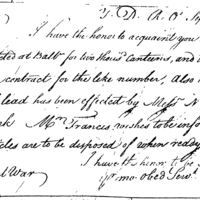 I have the honor to acquaint you
ted at Balt° for two thous^d canteens, and
contract for the like number, also
lead has been effected by Mess^rs N
M^r Frances wishes to be info
cles are to be disposed of when ready
I have th honor to be
War
mo. obed Serv^t.